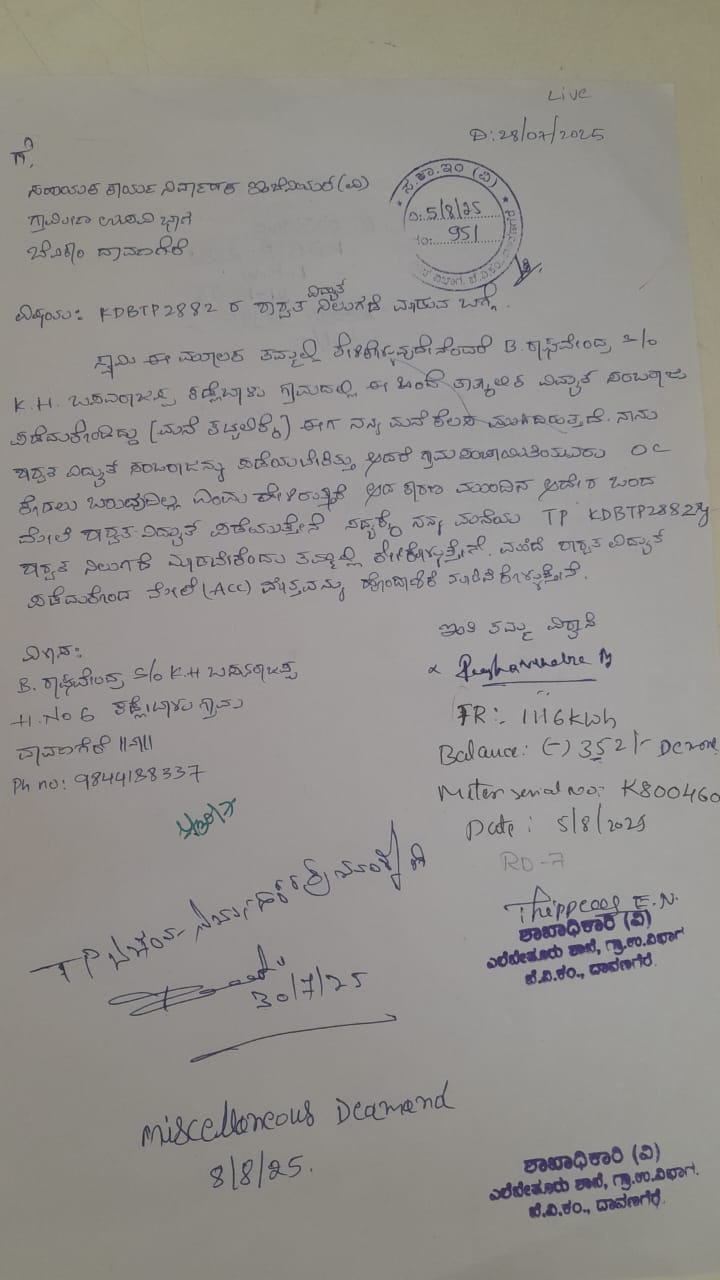 Live
D: 28/07/2025
ಗೆ,
ಸಹಾಯಕ ಕಾರ್ಯ ನಿರ್ವಾಹಕ ಇಂಜಿನಿಯರ್ (ವಿ)
ಗ್ರಾಮೀಣ ಉಪವಿಭಾಗ
ಬೆವಿಕಂ ದಾವಣಗೆರೆ
ಸ.ಕಾ.ಇಂ (ವಿ)
ದಿ: 5/8/25
ನಂ: 951
ವಿಷಯ: KDBTP2882 ರ ಶಾಶ್ವತ ವಿದ್ಯುತ್ ನಿಲುಗಡೆ ಮಾಡುವ ಬಗ್ಗೆ.
ಸ್ವಾಮಿ ಈ ಮೂಲಕ ತಮ್ಮಲ್ಲಿ ಕೇಳಿಕೊಳ್ಳುವುದೇನೆಂದರೆ B. ರಾಘವೇಂದ್ರ S/o
K.H. ಬಸವರಾಜಪ್ಪ ಕಡ್ಲೆಬಾಳು ಗ್ರಾಮದಲ್ಲಿ ಈ ಹಿಂದೆ ತಾತ್ಕಾಲಿಕ ವಿದ್ಯುತ್ ಸಂಪರಾಜು
ಪಡೆದುಕೊಂಡಿದ್ದು (ಮನೆ ಕಟ್ಟಲಿಕ್ಕೆ) ಈಗ ನನ್ನ ಮನೆ ಕೆಲಸ ಮುಗಿದಿರುತ್ತದೆ. ನಾನು
ಶಾಶ್ವತ ವಿದ್ಯುತ್ ಸಂಬರಾಜನ್ನು ಪಡೆಯಬೇಕಿತ್ತು ಆದರೆ ಗ್ರಾಮಪಂಚಾಯಿತಿಯವರು OC
ಕೊಡಲು ಬರುವುದಿಲ್ಲ ಎಂದು ಹೇಳಿರುತ್ತಾರೆ ಆದ ಕಾರಣ ಮುಂದಿನ ಆದೇಶ ಬಂದ
ಮೇಲೆ ಶಾಶ್ವತ ವಿದ್ಯುತ್ ಪಡೆಯುತ್ತೇನೆ ಸದ್ಯಕ್ಕೆ ನನ್ನ ಮನೆಯ TP KDBTP2882
ಶಾಶ್ವತ ನಿಲುಗಡೆ ಮಾಡಬೇಕೆಂದು ತಮ್ಮಲ್ಲಿ ಕೇಳಿಕೊಳ್ಳುತ್ತೇನೆ. ಶಾಶ್ವತ ವಿದ್ಯುತ್
ಪಡೆದುಕೊಂಡ ಮೇಲೆ (Acc) ಮೊತ್ತವನ್ನು ಹೊಂದಾಣಿಕೆ ಕೊಳ್ಳುತ್ತೇನೆ.
ಇಂತಿ ತಮ್ಮ ವಿಶ್ವಾಸಿ
Raghavendra B
ವಿಳಾಸ:
B. ರಾಘವೇಂದ್ರ S/o K.H ಬಸವರಾಜಪ್ಪ
H.No 6 ಕಡ್ಲೇಬಾಳು ಗ್ರಾಮ
ದಾವಣಗೆರೆ ||ತಾ||
Ph no: 9844188337
FR:- 1116 kwh
Balance: (-) 352/-
Meter serial no:- K800460
Date: 5/8/2025
RD-7
30/7/25
Thippesh E.N.
ಶಾಖಾಧಿಕಾರಿ (ವಿ)
ಎಲೆಬೇತೂರು ಶಾಖೆ, ಗ್ರಾ.ಉ.ವಿಭಾಗ
ಬೆ.ವಿ.ಕಂ., ದಾವಣಗೆರೆ.
Miscellaneous Deamand
8/8/25.
ಶಾಖಾಧಿಕಾರಿ (ವಿ)
ಎಲೆಬೇತೂರು ಶಾಖೆ, ಗ್ರಾ.ಉ.ವಿಭಾಗ.
ಬೆ.ವಿ.ಕಂ., ದಾವಣಗೆರೆ.